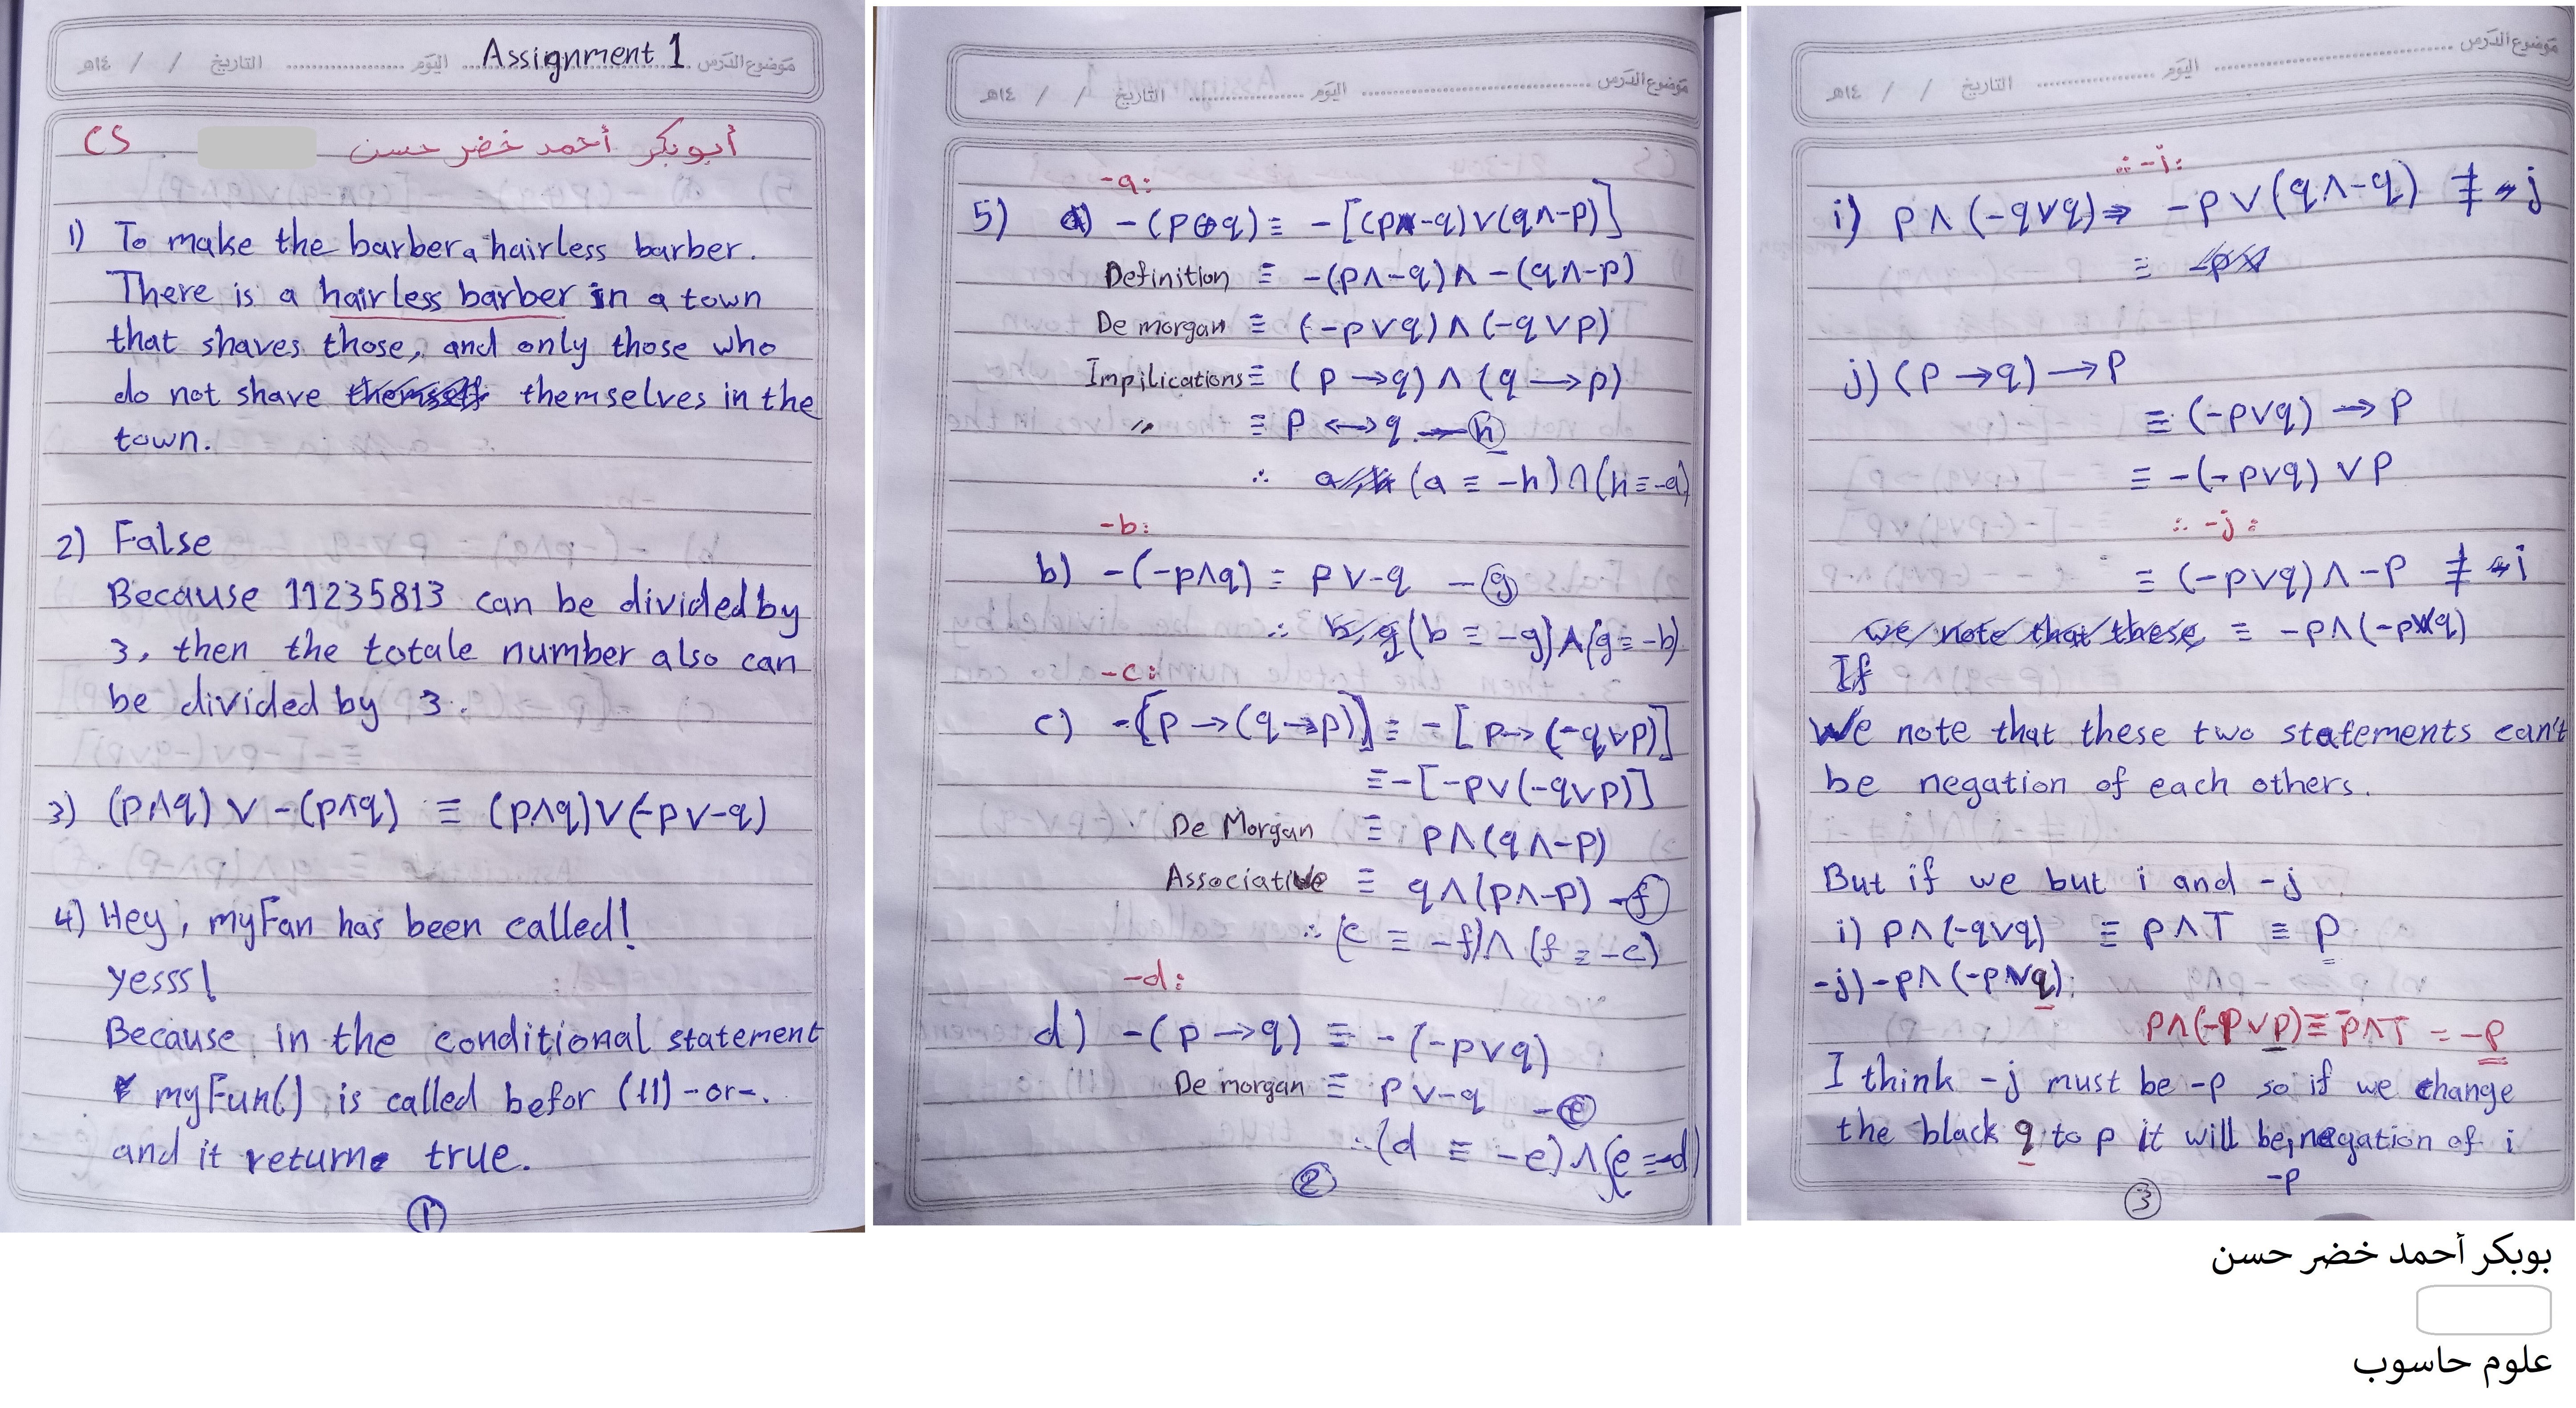 موضوع الدرس Assignment 1 اليوم التاريخ / / ١٤هـ
أبوبكر أحمد خضر حسن CS
1) To make the barber a hairless barber.
There is a hairless barber in a town
that shaves those, and only those who
do not shave themselves in the
town.
2) False
Because 11235813 can be divided by
3, then the totale number also can
be divided by 3.
3) (p∧q) ∨ -(p∧q) ≡ (p∧q)∨(-p∨-q)
4) Hey, myFan has been called!
yesss!
Because in the conditional statement
myFun() is called befor (||) -or-.
and it returne true.
1
موضوع الدرس اليوم التاريخ / / ١٤هـ
-a:
5) a) -(p⊕q) ≡ -[(p∧-q)∨(q∧-p)]
Definition ≡ -(p∧-q)∧-(q∧-p)
De morgan ≡ (-p∨q)∧(-q∨p)
Impilications ≡ (p→q)∧(q→p)
〃 ≡ p↔q → h
∴ (a ≡ -h)∧(h ≡ -a)
-b:
b) -(-p∧q) ≡ p∨-q - g
∴ (b ≡ -g)∧(g ≡ -b)
-c:
c) -[p→(q→p)] ≡ -[p→(-q∨p)]
≡ -[-p∨(-q∨p)]
De Morgan ≡ p∧(q∧-p)
Associative ≡ q∧(p∧-p) - f
∴ (c ≡ -f)∧(f ≡ -c)
-d:
d) -(p→q) ≡ -(-p∨q)
De morgan ≡ p∨-q - e
∴ (d ≡ -e)∧(e ≡ -d)
2
موضوع الدرس اليوم التاريخ / / ١٤هـ
∴ -i:
i) p∧(-q∨q) ⇒ -p∨(q∧-q) ≢ j
≡
j) (p→q)→p
≡ (-p∨q)→p
≡ -(-p∨q)∨p
∴ -j:
≡ (-p∨q)∧-p ≢ i
we note that these ≡ -p∧(-p∨q)
If
We note that these two statements can't
be negation of each others.
But if we but i and -j
i) p∧(-q∨q) ≡ p∧T ≡ p
-j) -p∧(-p∨q):
p∧(-p∨p) ≡ -p∧T = -p
I think -j must be -p so if we change
the black q to p it will be negation of i
-p
3
بوبكر أحمد خضر حسن
علوم حاسوب